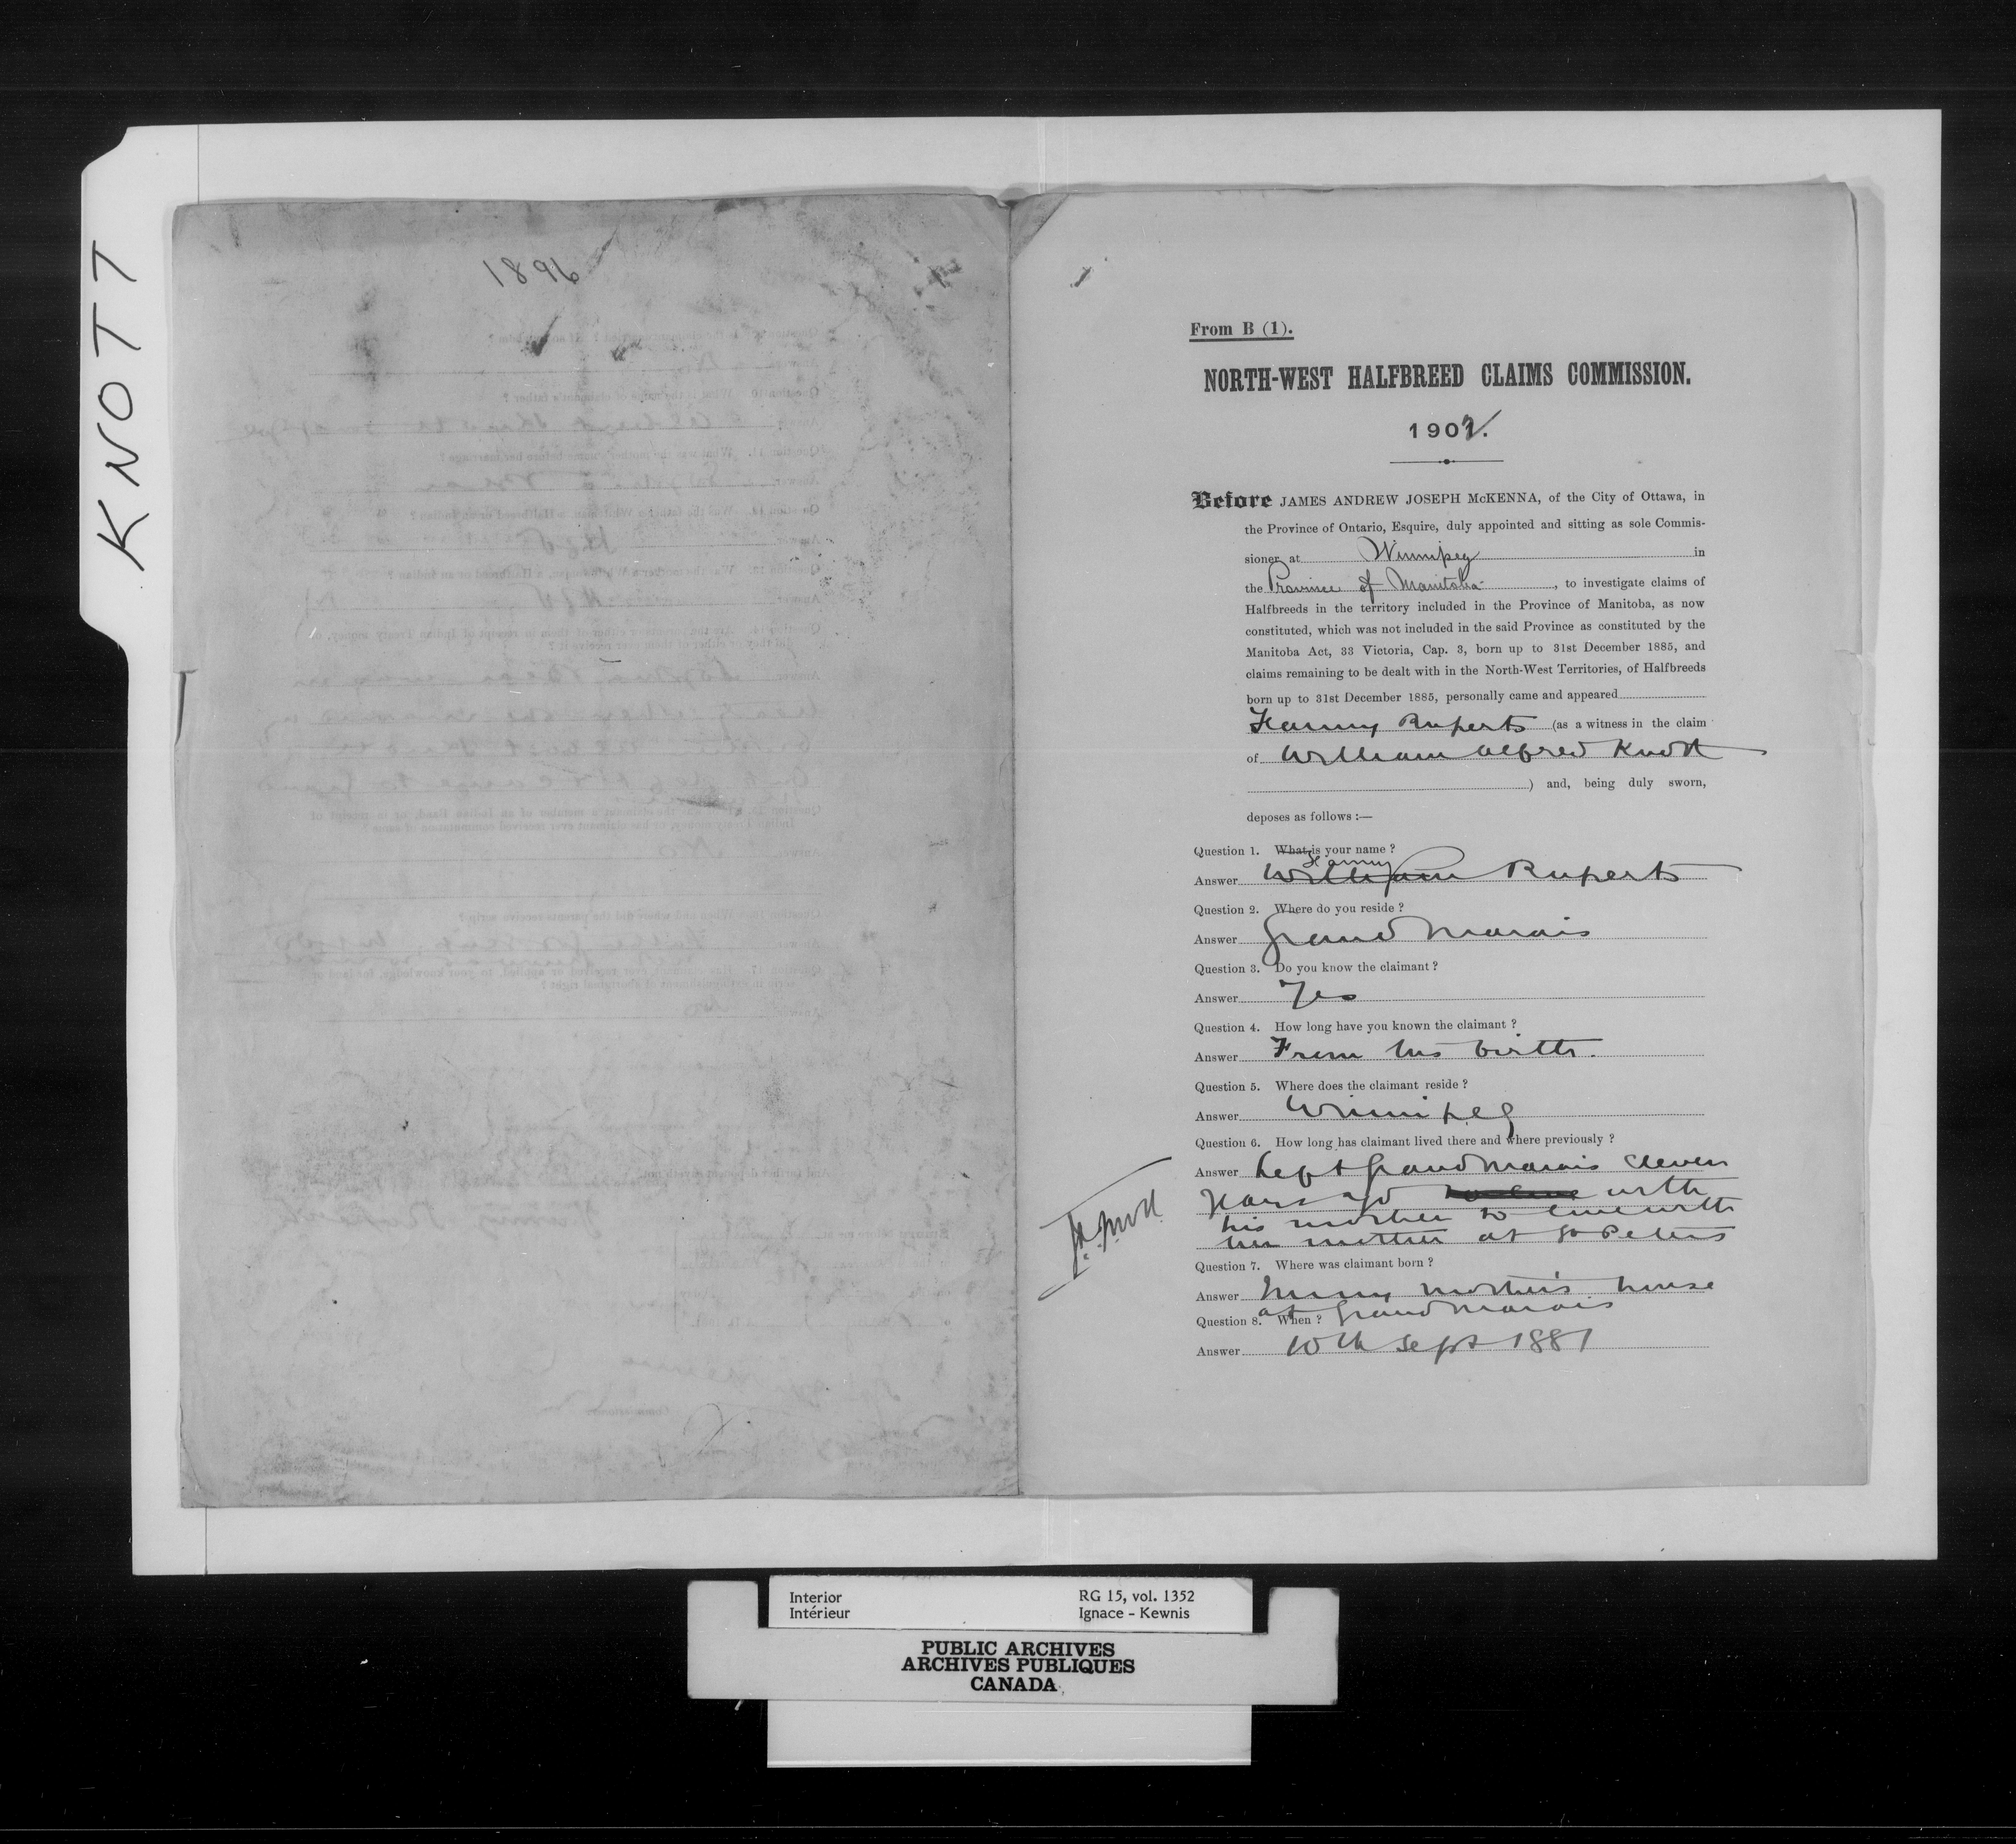 KNOTT
1896
From B (1).
NORTH-WEST HALFBREED CLAIMS COMMISSION.
1902.
Before JAMES ANDREW JOSEPH McKENNA, of the City of Ottawa, in
the Province of Ontario, Esquire, duly appointed and sitting as sole Commis-
sioner at Winnipeg in
the Province of Manitoba, to investigate claims of
Halfbreeds in the territory included in the Province of Manitoba, as now
constituted, which was not included in the said Province as constituted by the
Manitoba Act, 33 Victoria, Cap. 3, born up to 31st December 1885, and
claims remaining to be dealt with in the North-West Territories, of Halfbreeds
born up to 31st December 1885, personally came and appeared
Fanny Ruperts (as a witness in the claim
of William Alfred Knott
) and, being duly sworn,
deposes as follows :—
Question 1. What is your name ?
Fanny
Answer William Ruperts
Question 2. Where do you reside ?
Answer Grand Marais
Question 3. Do you know the claimant ?
Answer Yes
Question 4. How long have you known the claimant ?
Answer From his birth.
Question 5. Where does the claimant reside ?
Answer Winnipeg
Question 6. How long has claimant lived there and where previously ?
Answer Left Grand Marais eleven
years ago with
his mother to live with
her mother at St Peters
Question 7. Where was claimant born ?
Answer In my mother's house
at Grand Marais
Question 8. When ?
Answer 10th Sept 1881
Interior
Intérieur
RG 15, vol. 1352
Ignace - Kewnis
PUBLIC ARCHIVES
ARCHIVES PUBLIQUES
CANADA